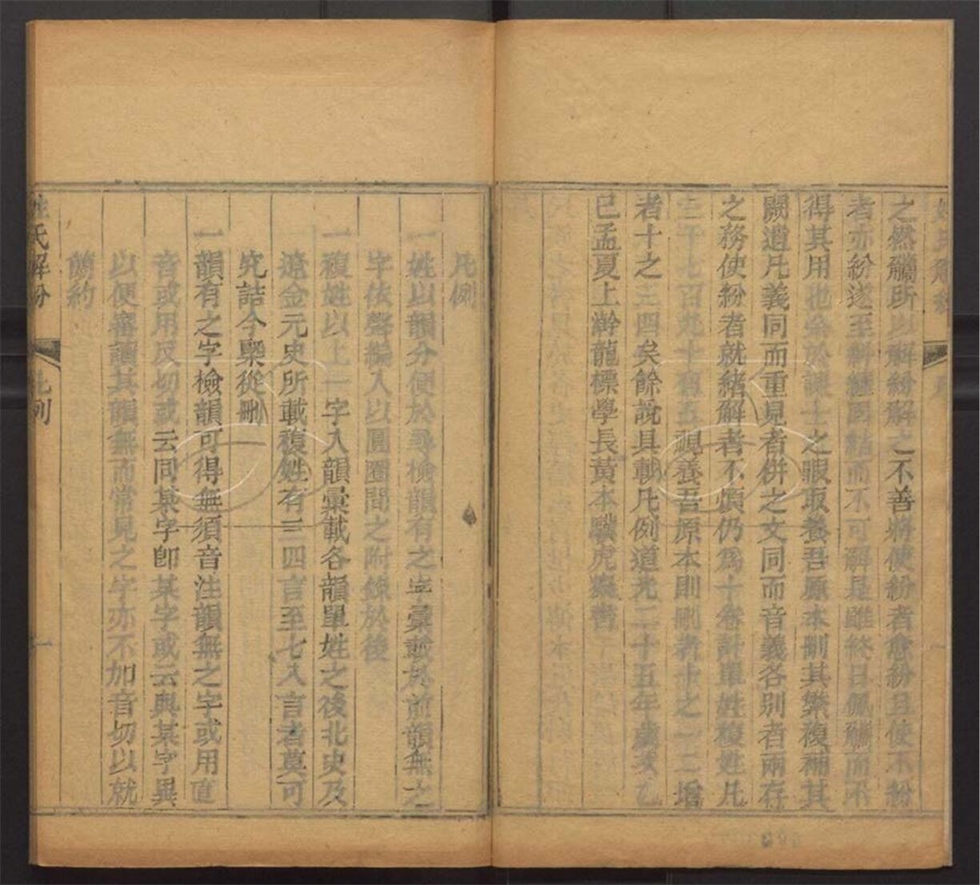 之然觿所以解紛解之不善將使紛者愈紛且使不紛
者亦紛遂至糾纏固結而不可解是雖終日佩觿而不
得其用也余於課士之暇取養吾原本刪其繁複補其
闕遺凡義同而重見者併之文同而音義各別者兩存
之務使紛者就緒解者不煩仍為十卷計單姓複姓凡
三千七百九十有五視養吾原本則刪者十之一二增
者十之三四矣餘說具載凡例道光二十五年歲次乙
巳孟夏上澣龍標學長黃本驥虎癡書
姓氏解紛 凡例 一
凡例
一姓以韻分便於尋檢韻有之字彙載於前韻無之
字依聲編入以圓圈間之附錄於後
一複姓以上一字入韻彙載各韻單姓之後北史及
遼金元史所載複姓有三四言至七八言者莫可
究詰今槩從刪
一韻有之字檢韻可得無須音注韻無之字或用直
音或用反切或云同某字卽某字或云與某字異
以便審讀其韻無而常見之字亦不加音切以就
簡約